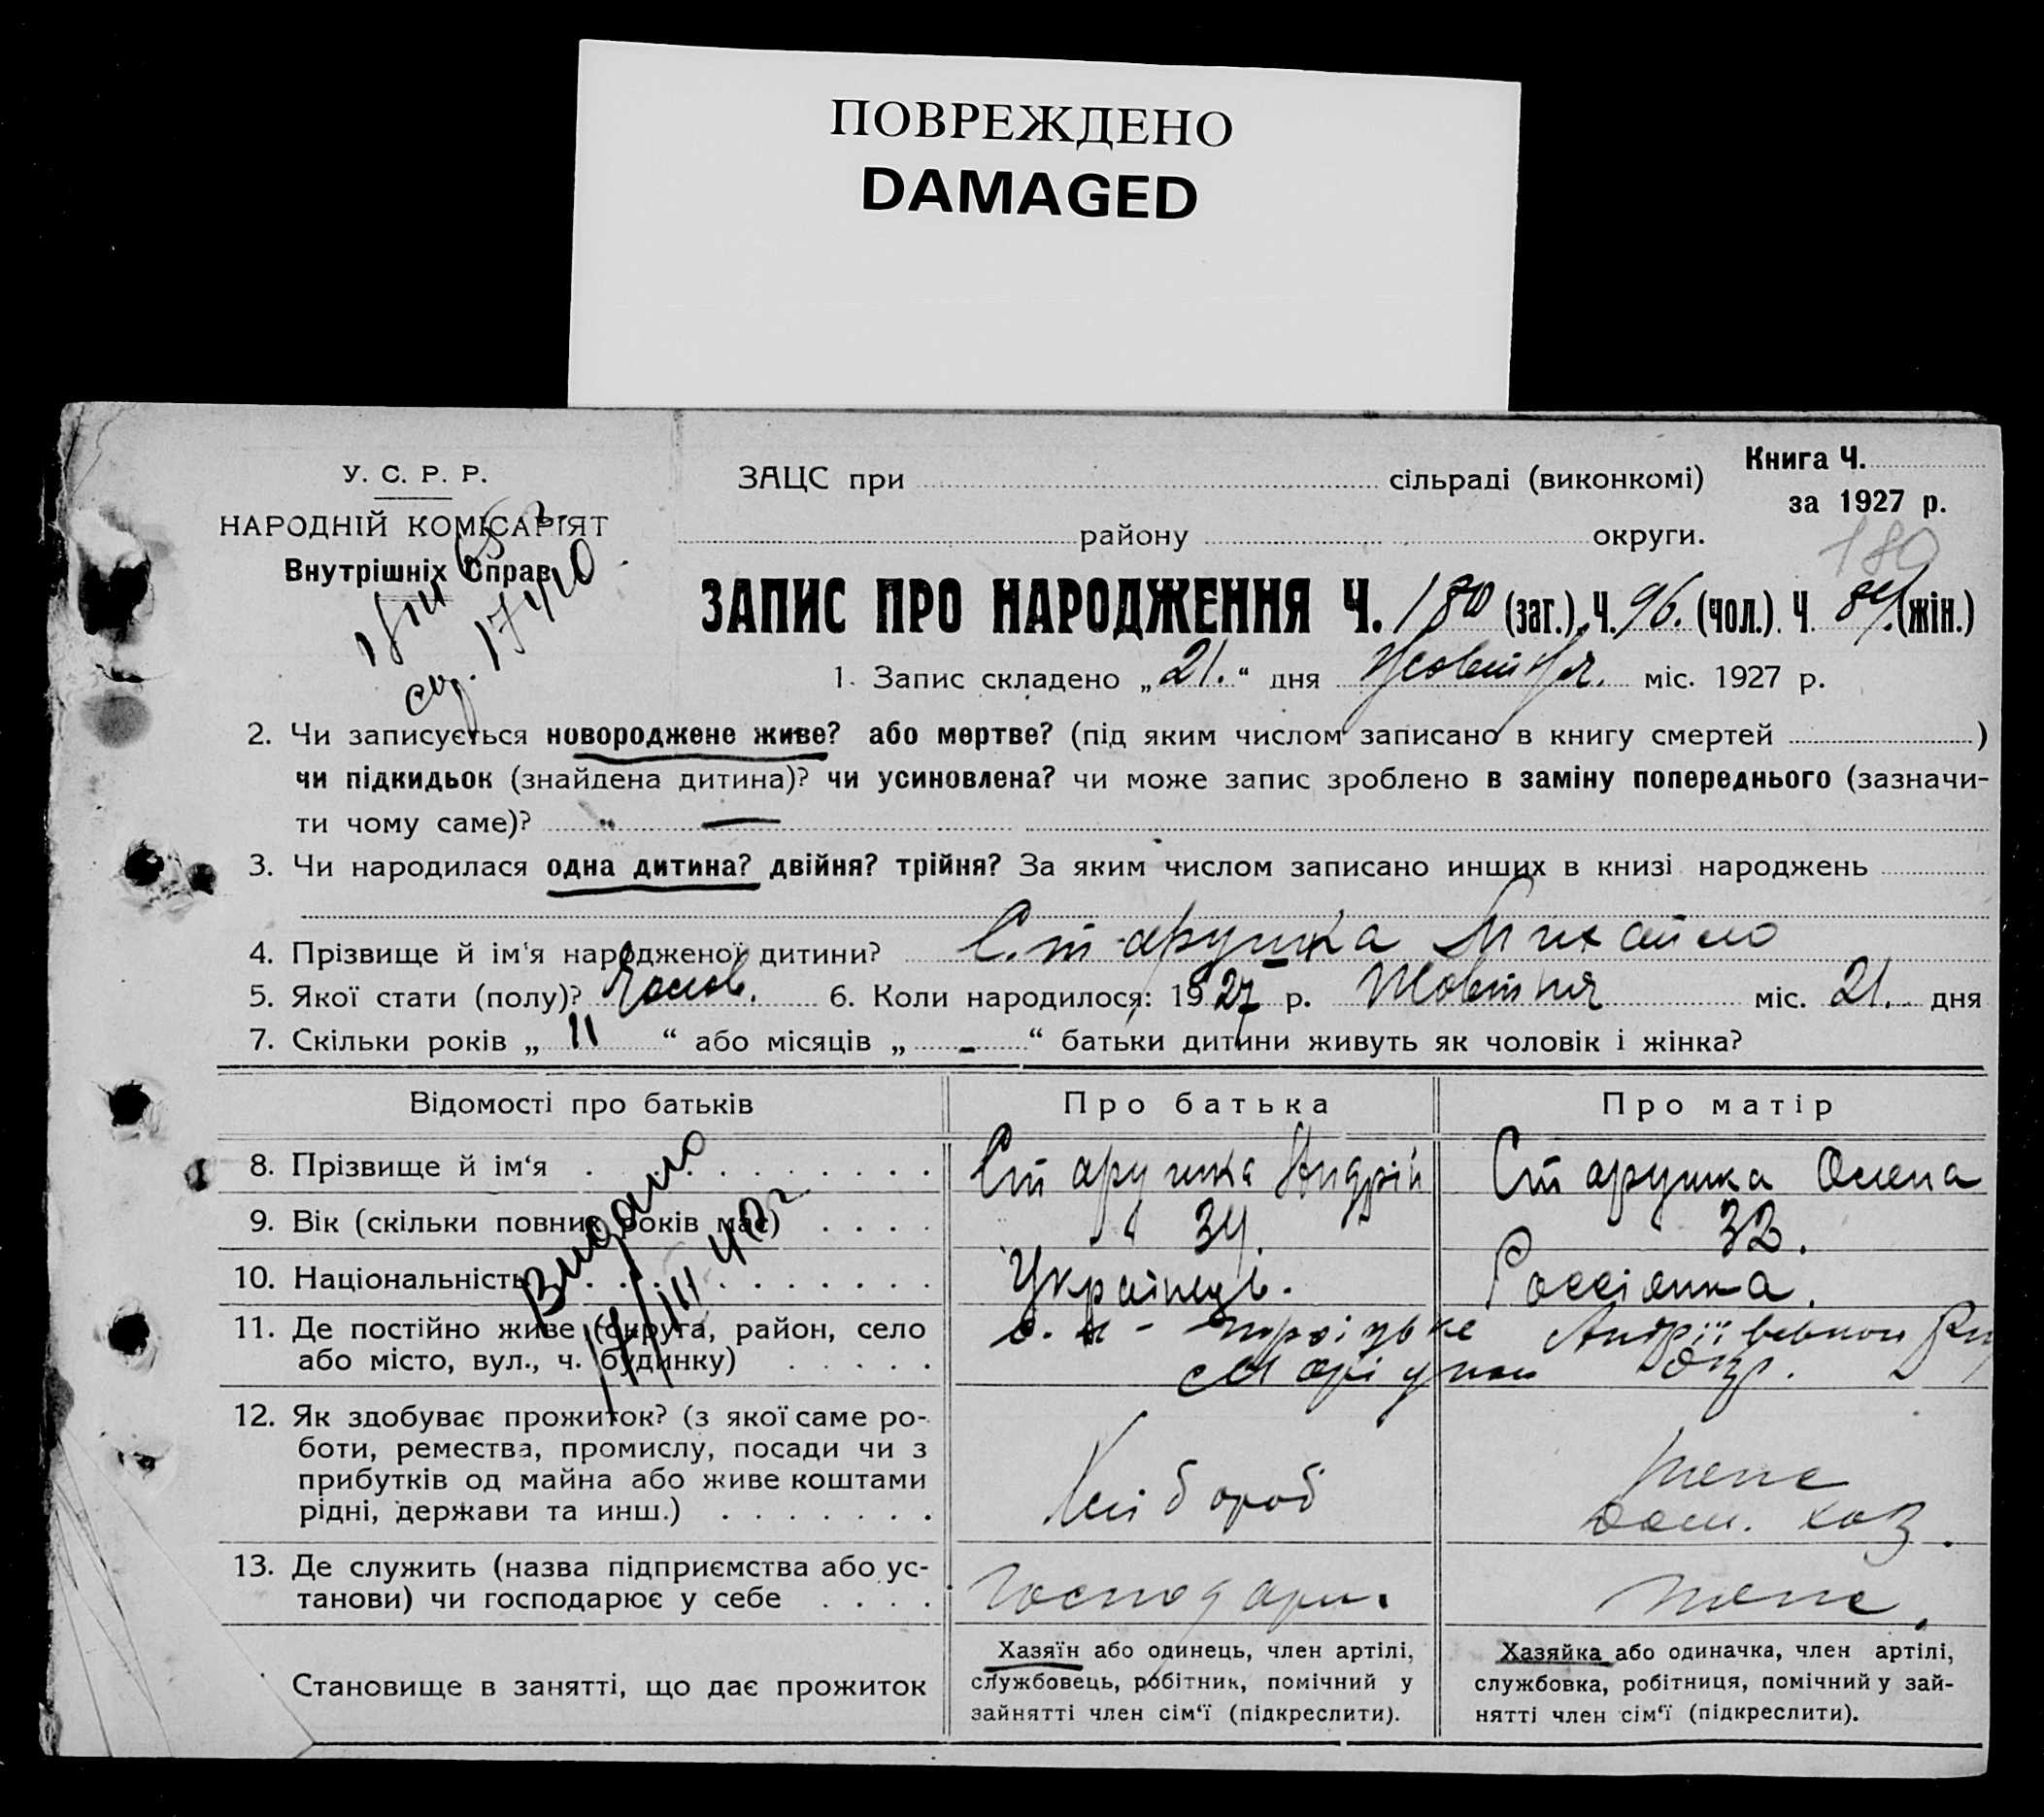 ПОВРЕЖДЕНО
DAMAGED
У. С. Р. Р.
НАРОДНІЙ КОМІСАРІЯТ
Внутрішніх Справ
ЗАЦС при сільраді (виконкомі)
Книга Ч.
за 1927 р.
району округи.
180
ЗАПИС ПРО НАРОДЖЕННЯ Ч. 180 (заг.). Ч. 96. (чол.). Ч 84. (жін.)
1. Запис складено „21.“ дня Жовтня. міс. 1927 р.
2. Чи записується новороджене живе? або мертве? (під яким числом записано в книгу смертей )
чи підкидьок (знайдена дитина)? чи усиновлена? чи може запис зроблено в заміну попереднього (зазначи-
ти чому саме)? —
3. Чи народилася одна дитина? двійня? трійня? За яким числом записано инших в книзі народжень
4. Прізвище й ім‘я народженої дитини? Старушка Михайло
5. Якої стати (полу)? Чолов. 6. Коли народилося: 1927 р. Жовтня міс. 21. дня
7. Скільки років „ 11 “ або місяців „ - “ батьки дитини живуть як чоловік і жінка?
Відомості про батьків Про батька Про матір
8. Прізвище й ім‘я Старушка Андрій Старушка Олена
9. Вік (скільки повних років має) 34. 32.
10. Національність Українець. Россіянка.
Видано
17/III 40 г.
11. Де постійно живе (округа, район, село
або місто, вул., ч. будинку)
12. Як здобуває прожиток? (з якої саме ро-
боти, ремества, промислу, посади чи з
прибутків од майна або живе коштами
рідні, держави та инш.)
Хлібороб
дом. хаз.
13. Де служить (назва підприємства або ус-
танови) чи господарює у себе
Становище в занятті, що дає прожиток
Хазяїн або одинець, член артілі,
службовець, робітник, помічний у
зайнятті член сім‘ї (підкреслити).
Хазяйка або одиначка, член артілі,
службовка, робітниця, помічний у зай-
нятті член сім‘ї (підкреслити).